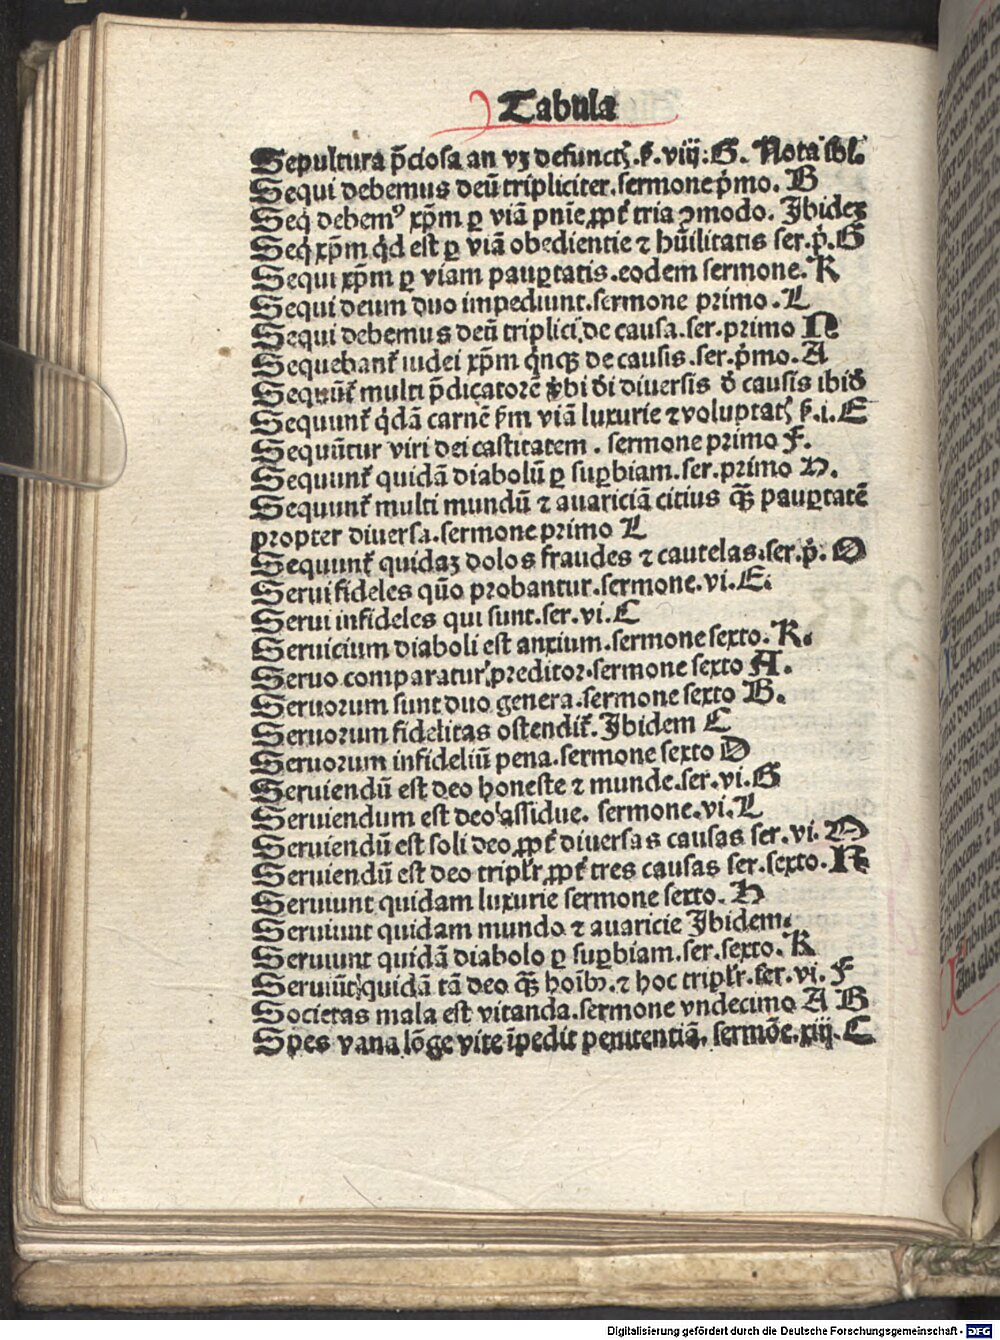 Tabula
Sepultura p̄ciosa an vꝫ defunctꝭ.ẜ.viij.G. Nota ibi.
Sequi debemus deū tripliciter.sermone p̄mo. B
Seq̇ debemꝰ xp̄m ꝑ viā pn̄ie ꝓpt̄ tria ꝯmodo. Ibideꝫ
Seq̇ xp̄m qd̄ est ꝑ viā obedientie ⁊ hūilitatis ser.p̄.G
Sequi xp̄m ꝑ viam pauꝑtatis.eodem sermone. K
Sequi deum duo impediunt.sermone primo.L
Sequi debemus deū triplici de causa.ser.primo N
Sequebant̄ iudei xp̄m q̇nqꝫ de causis.ser.p̄mo.A
Sequūt̄ multi p̄dicatorē v̄bi dei diuersis d̄ causis ibid̄
Sequunt̄ q̇dā carnē ẜm viā luxurie ⁊ voluptatꝭ ẜ.i.E
Sequūtur viri dei castitatem. sermone primo F.
Sequunt̄ quidā diabolū ꝑ suꝑbiam.ser.primo H.
Sequunt̄ multi mundū ⁊ auariciā citius qꝫ̄ pauꝑtatē
propter diuersa.sermone primo L
Sequunt̄ quidaꝫ dolos fraudes ⁊ cautelas.ser.p̄. O
Serui fideles quō probantur.sermone.vi.E.
Serui infideles qui sunt.ser.vi.C
Seruicium diaboli est anxium.sermone sexto.K.
Seruo comparatur preditor.sermone sexto A.
Seruorum sunt duo genera.sermone sexto B.
Seruorum fidelitas ostendit̄. Ibidem C
Seruorum infideliū pena.sermone sexto D
Seruiendū est deo honeste ⁊ munde.ser.vi.G
Seruiendum est deo assidue. sermone.vi.L
Seruiendū est soli deo ꝓpt̄ diuersas causas ser.vi. M
Seruiendū est deo triplr̄ ꝓpt̄ tres causas ser.sexto.N
Seruiunt quidam luxurie sermone sexto. H
Seruiunt quidam mundo ⁊ auaricie Ibidem.
Seruiunt quidā diabolo ꝑ suꝑbiam.ser.sexto.K
Seruiūt quidā tā deo qꝫ̄ hoībꝫ.⁊ hoc triplr̄.ser.vi. F
Societas mala est vitanda.sermone vndecimo A B
Spes vana lōge vite īpedit penitentiā. sermōe.xiij.C
Digitalisierung gefördert durch die Deutsche Forschungsgemeinschaft - DFG